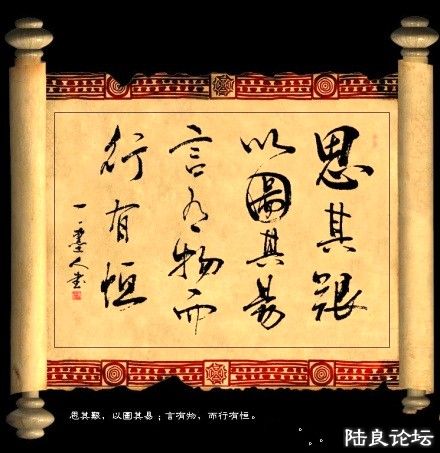 思其艱
以圖其易
言有物而
行有恒
思其艱，以圖其易；言有物，而行有恒。
陆良论坛